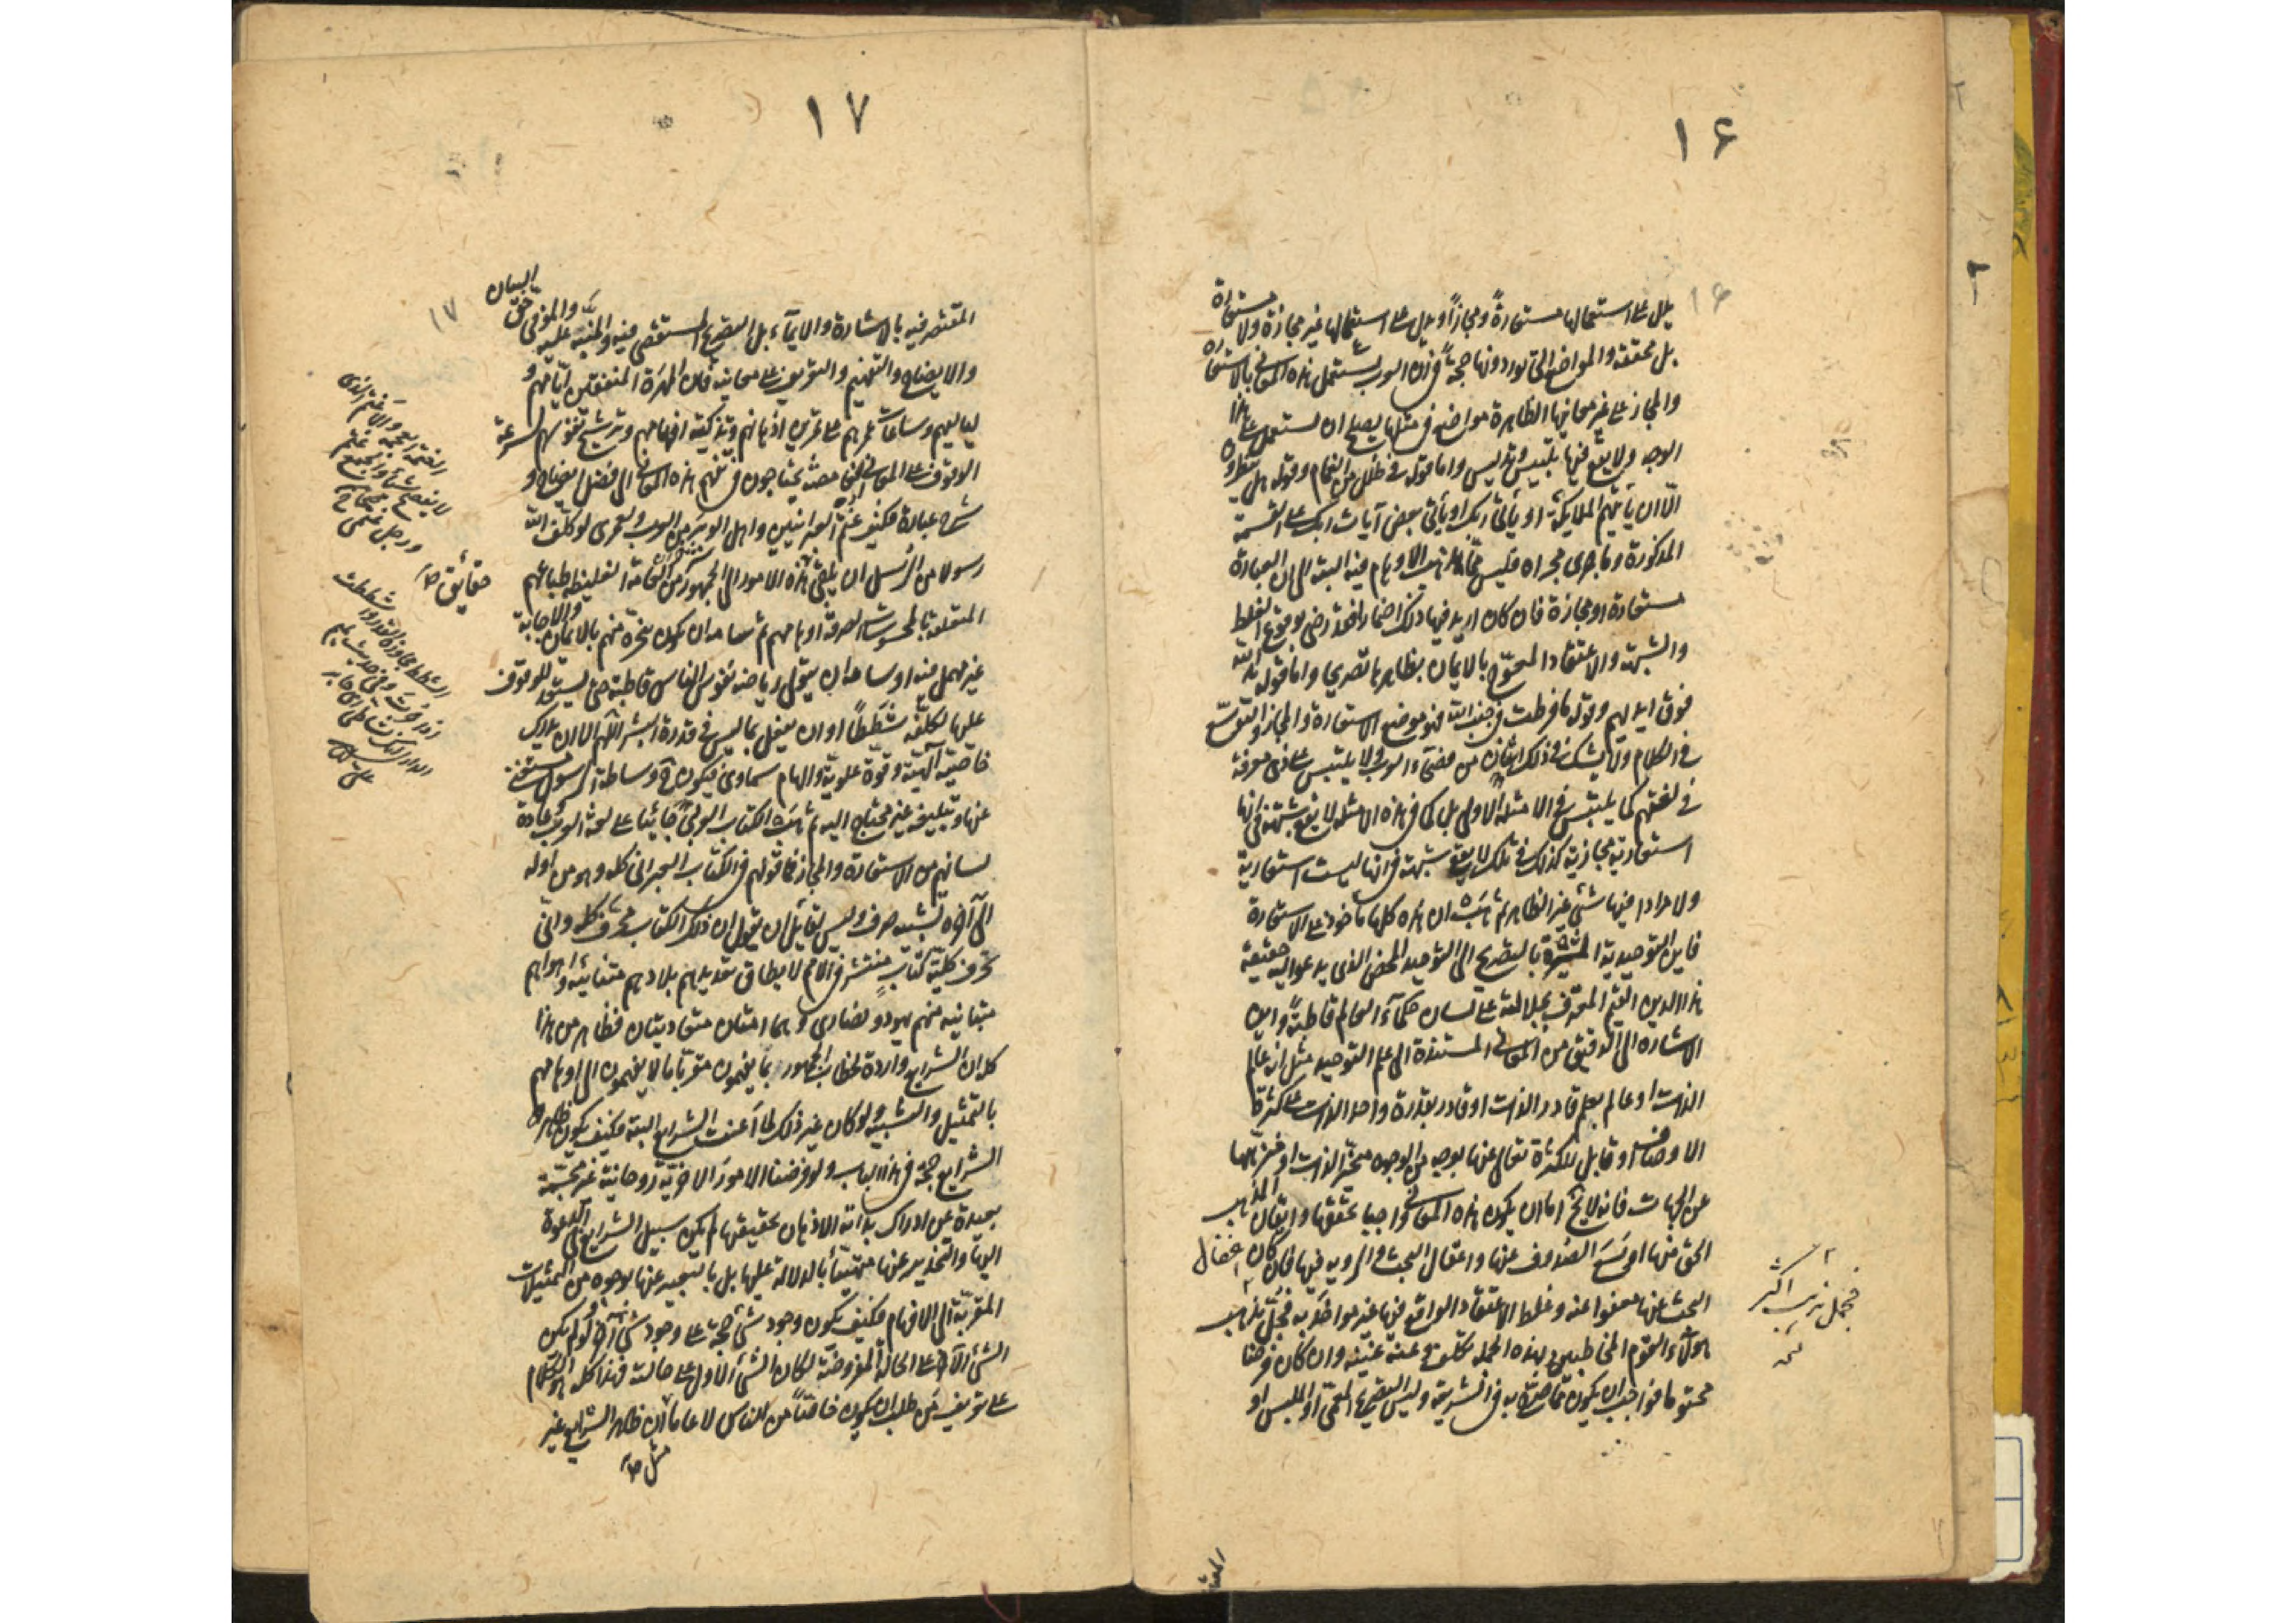 ۱۶
۱۶
يدل على استعمالها مستعارةً ومجازاً ويدل على استعمالها غير مجازة ولا مستعارة
بل محققة والمواضع التي توردونها حجةً في ان العرب تستعمل هذه المعاني بالاستعارة
والمجاز على غير معانيها الظاهرة مواضع في مثلها يصلح ان تستعمل على هذا
الوجه ولا يقع فيها تلبيس وتدليس واما قوله في ظلل من الغمام وقوله هل ينظرون
الّا ان يأتيهم الملايكة او يأتي ربك او يأتي بعض آيات ربك على القسمة
المذكورة وما جرى مجراه فليس تذهب الاوهام فيه البتة الى ان العبارة
مستعارة او مجازة فان كان اريد فيها ذلك اضمارا فقد رضى بوقوع الغلط
والشبهة والاعتقاد المعوّج بالايمان بظاهرها تصريحا واما قوله يد الله
فوق ايديهم وقوله ما فرطت في جنب الله فهو موضع الاستعارة والمجاز والتوسّع
في الكلام ولا يشك في ذلك اثنان من فصحآء العرب ولا يلتبس على ذي معرفة
في لغتهم كما يلتبس في الامثلة الاولى بل كما في هذه الامثلة لا يقع شبهة في انها
استعارية مجازية كذلك في تلك لا يقع شبهة في انها ليست استعارية
ولا مرادا فيها شئ غير الظاهر ثم هب ان هذه كلها مأخوذة على الاستعارة
فاين التوحيد به المشيرة بالتصريح الى التوحيد المحض الذي يدعو اليه حقيقة
هذا الدين القيّم المعترف بجلالته على لسان حكمآء العالم قاطبةً واين
الاشارة الى الدقيق من المعاني المستندة الى علم التوحيد مثل انه عالم
الذات او عالم بعلم قادر الذات او قادر بقدرة واحد الذات على كثرة
الاوصاف او قابل للكثرة تعالى عنها بوجه من الوجوه متحيّز الذات او منزّهها
عن الجهات فانه لا يخ اما ان يكون هذه المعاني واجبا تحققها واتقان المذهب
الحق فيها او يسع الصدوف عنها واغفال البحث والروية فيها فان كان اغفال
البحث عنها معفوا عنه وغلط الاعتقاد الواقع فيها غير مواخذ به فجلّ مذهب
هولآء القوم المخاطبين بهذه الجملة تكلّف وعنه غنية وان كان فرضا
محتوما فواجب ان يكون مما صرّح به في الشريعة وليس التصريح المعمّى او الملبس او
فمجمل مذهب اكثر
المقتصر
۱۷
۱۷
المقتصر فيه بالاشارة والايمآء بل التصريح المستقصى فيه والمنبّه عليه والموفى حق البيان
والايضاح والتفهيم والتعريف على معانيه فان المهرة المنفقين ايّامهم و
لياليهم وساعات عمرهم على تمرين اذهانهم وتذكية افهامهم وترشيح نفوسهم لسرعة
الوقوف على المعاني الغامضة يحتاجون في تفهم هذه المعاني الى فضل ايضاح و
شرح عبارة فكيف غتم العبرانيين واهل الوبر من العرب ولعمرى لو كلّف الله
رسولا من الرسل ان يلقى هذه الامور الى الجمهور من العامة الغليظة طباعهم
المتعلقة بالمحسوسات الصرفة اوهامهم ثم سامه ان يكون منجزه منهم بالايمان والاجابة
غير مهمل فيه او سامه ان يتولى رياضة نفوس الناس قاطبة حتى تستعد للوقوف
عليها لكلّفه شططًا او ان يفعل بما ليس في قدرة البشر اللهم الا ان يدرك
خاصّية آلهية وقوة علوية والهام سماوى فيكون ح وساطة الرسول مستغنى
عنها وتبليغه غير محتاج اليه ثم هب الكتاب العربي جائيا على لغة العرب وعادة
لسانهم من الاستعارة والمجاز فما قولهم في الكتاب العبرانى كله وهو من اوله
الى آخره تشبيه صرف وليس لقايل ان يقول ان ذلك الكتاب محرف كله وانّى
تحرف كلية كتابٍ منتشر في الامم لا يطاق تعديدهم بلادهم متنائية واهواهم
متباينة منهم يهود ونصارى وهما امتان متعاديتان فظاهر من هذا
كله ان الشرايع واردة لخطاب الجمهور بما يفهمون مقربا ما لا يفهمون الى اوهامهم
بالتمثيل والتشبيه ولو كان غير ذلك لما اغنت الشرايع البتة فكيف يكون ظاهر
الشرايع حجة في هذا الباب ولو فرضنا الامور الاخروية روحانية غير مجسّمة
بعيدة عن ادراك بداية الاذهان تحقيقها لم يكن سبيل الشرايع في الدعوة
اليها والتحذير عنها منبّهاً بالدلالة عليها بل بالتعبير عنها بوجوه من التمثيلات
المقربة الى الافهام فكيف يكون وجود شئ حجة على وجود شئ آخر ولو لم يكن
الشئ الآخر على الحالة المفروضة لكان الشئ الاول على حالته فهذا كله هو الكلام
على تعريف من طلب ان يكون خاصّاً من الناس لا عاماً ان ظاهر الشرايع غير
مثل ص
الغتمة العجمة والاغتم الذى
لا يفصح شيأ والجمع غتم
ورجل غتمى
حقائق ص
الشطط مجاوزة القدر